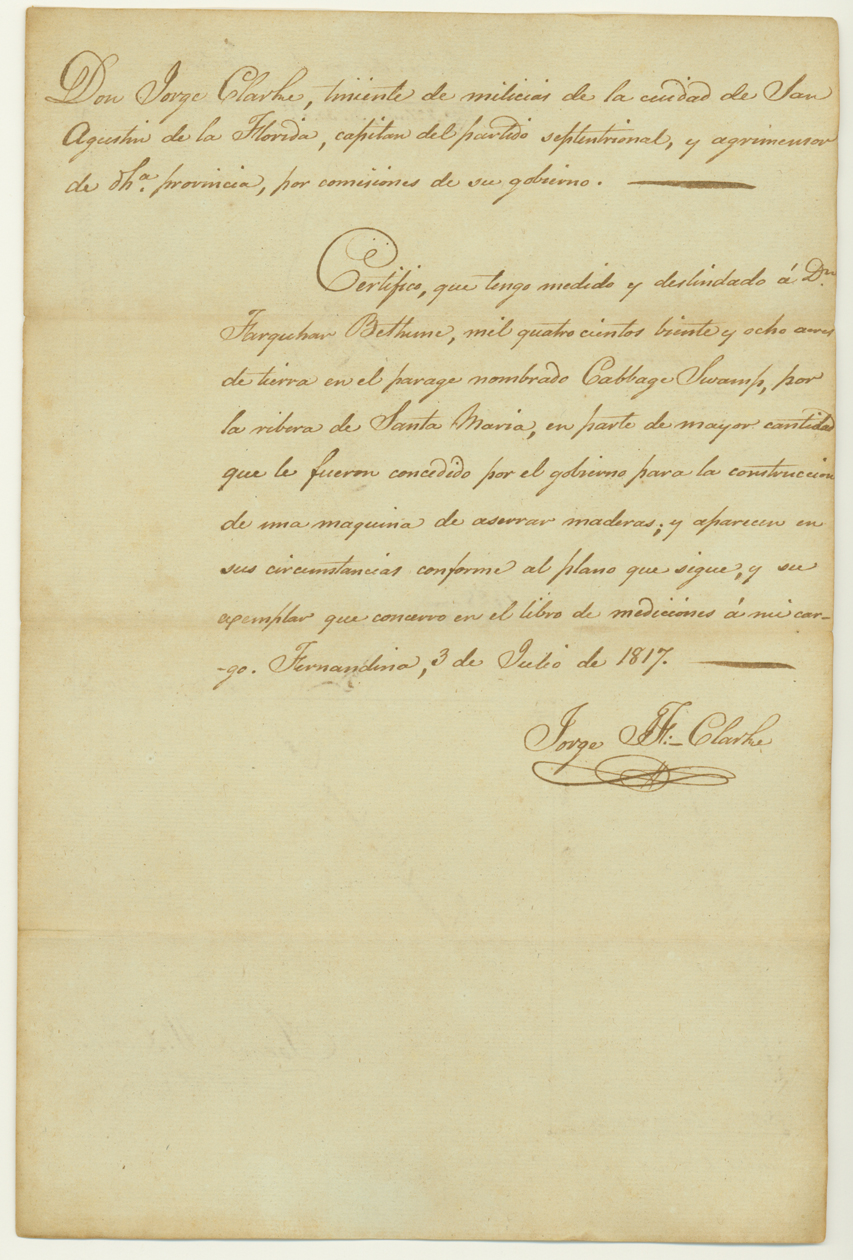 Don Jorge Clarke, tiniente de milicias de la ciudad de San
Agustin de la Florida, capitan del partido septentrional, y agrimensor
de dhᵃ. provincia, por comisiones de su gobierno.
Certifico, que tengo medido y deslindado á Dⁿ.
Farquhar Bethune, mil quatro cientos biente y ocho acres
de tierra en el parage nombrado Cabbage Swamp, por
la ribera de Santa Maria, en parte de mayor cantidad
que le fueron concedido por el gobierno para la construccion
de una maquina de aserrar maderas; y aparecen en
sus circumstancias conforme al plano que sigue, y su
exemplar que concervo en el libro de mediciones á mi car-
-go. Fernandina, 3 de Julio de 1817.
Jorge J. F:- Clarke